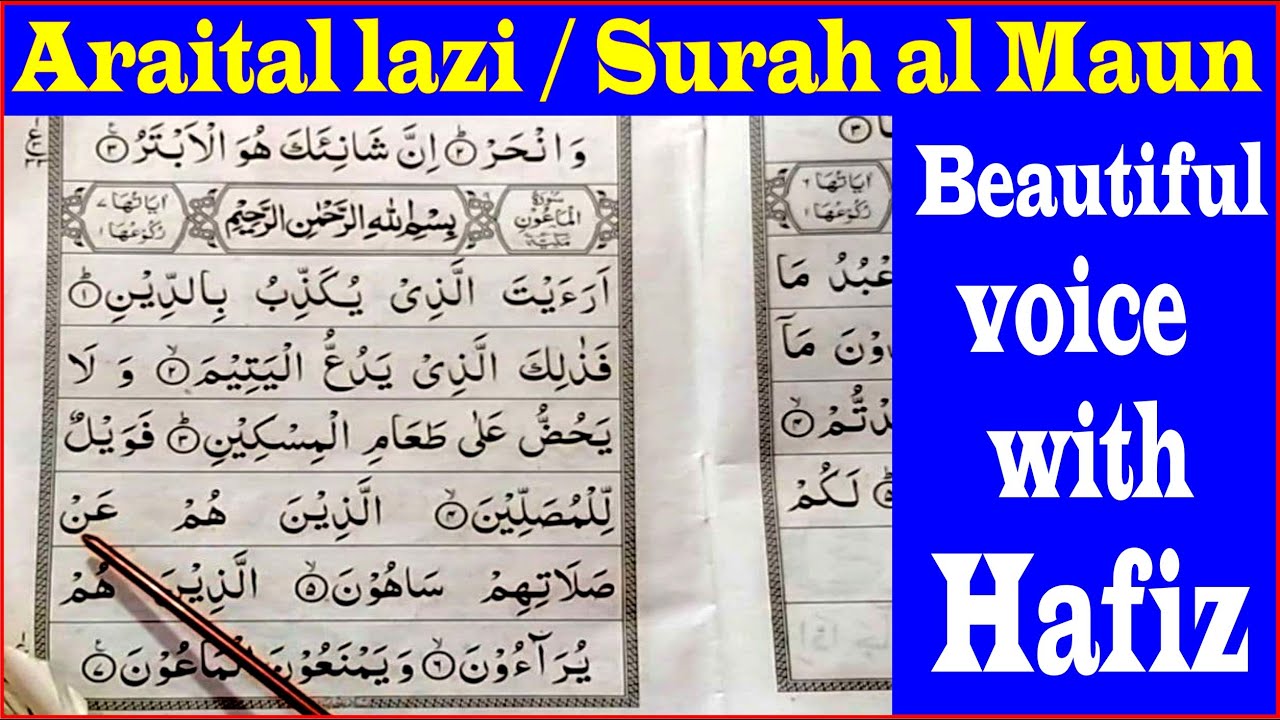 Araital lazi / Surah al Maun
وَانْحَرْ ؕ۲ اِنَّ شَانِئَكَ هُوَ الْاَبْتَرُ ۳
اٰيَاتُهَا ۷
رُكُوْعُهَا ۱
بِسْمِ اللّٰهِ الرَّحْمٰنِ الرَّحِيْمِ
سُوْرَةُ
الْمَاعُوْنِ
مَكِّيَّةٌ
اَرَءَيْتَ الَّذِىْ يُكَذِّبُ بِالدِّيْنِ ؕ۱
فَذٰلِكَ الَّذِىْ يَدُعُّ الْيَتِيْمَ ۙ۲ وَ لَا
يَحُضُّ عَلٰى طَعَامِ الْمِسْكِيْنِ ؕ۳ فَوَيْلٌ
لِّلْمُصَلِّيْنَ ۙ۴ الَّذِيْنَ هُمْ عَنْ
صَلَاتِهِمْ سَاهُوْنَ ۙ۵ الَّذِيْنَ هُمْ
يُرَآءُوْنَ ۙ۶ وَيَمْنَعُوْنَ الْمَاعُوْنَ ۷
اٰيَاتُهَا ۶
رُكُوْعُهَا ۱
عْبُدُ مَا
مَآ
دْتُّمْ ۙ۴
لَكُمْ
Beautiful
voice
with
Hafiz